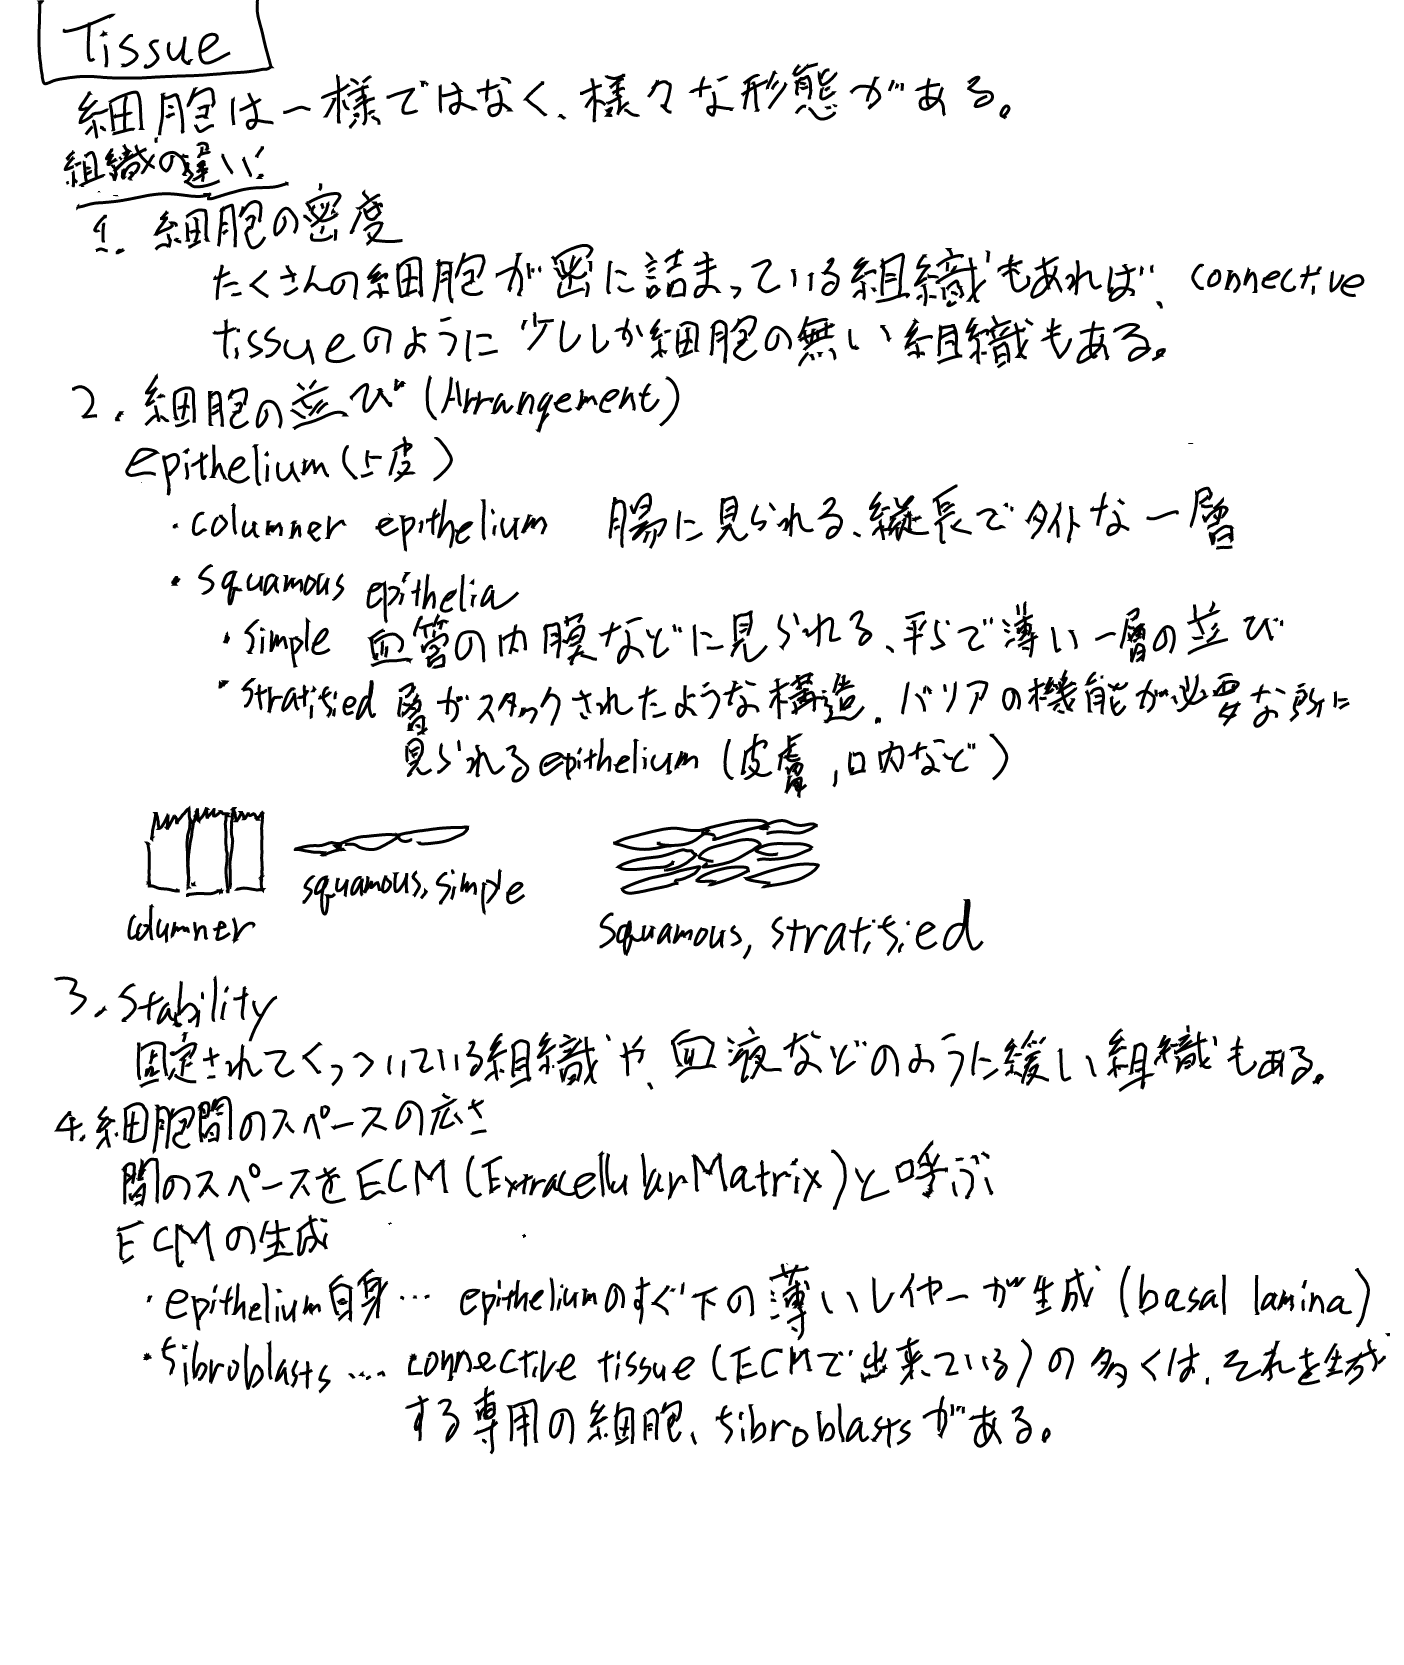 Tissue
細胞は一様ではなく、様々な形態がある。
組織の違い:
1. 細胞の密度
たくさんの細胞が密に詰まっている組織もあれば、connective
tissueのように少ししか細胞の無い組織もある。
2. 細胞の並び(Arrangement)
epithelium(上皮)
・columner epithelium 腸に見られる、縦長でタイトな一層
・squamous epithelia
・simple 血管の内膜などに見られる、平らで薄い一層の並び
・stratified 層がスタックされたような構造。バリアの機能が必要な所に
見られるepithelium (皮膚, 口内など)
columner
squamous, simple
squamous, stratified
3. Stability
固定されてくっついている組織や、血液などのように緩い組織もある。
4. 細胞間のスペースの広さ
間のスペースをECM (Extracellular Matrix)と呼ぶ
ECMの生成
・epithelium自身… epitheliumのすぐ下の薄いレイヤーが生成 (basal lamina)
・fibroblasts … connective tissue (ECMで出来ている)の多くは、それを生成
する専用の細胞、fibroblastsがある。